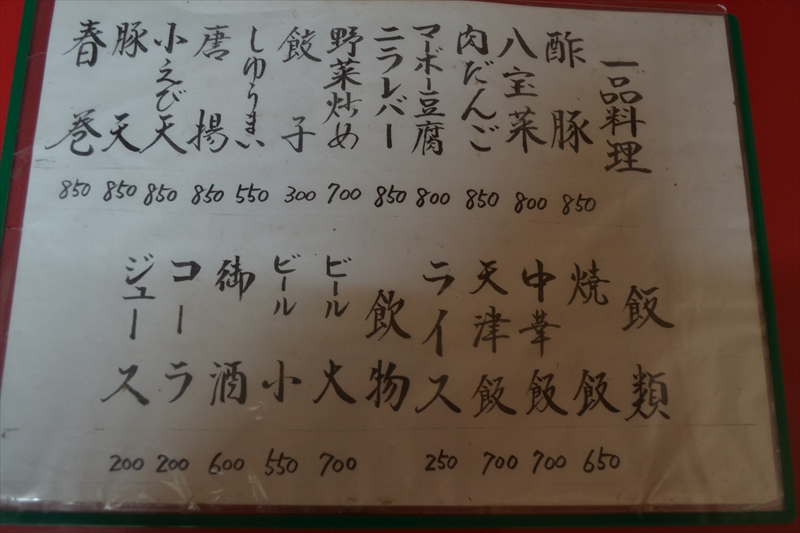 一品料理
酢豚 850
八宝菜 800
肉だんご 850
マーボー豆腐 800
ニラレバー 850
野菜炒め 700
餃子 300
しゅうまい 550
唐揚 850
小えび天 850
豚天 850
春巻 850
飯類
焼飯 650
中華飯 700
天津飯 700
ライス 250
飲物
ビール大 700
ビール小 550
御酒 600
コーラ 200
ジュース 200